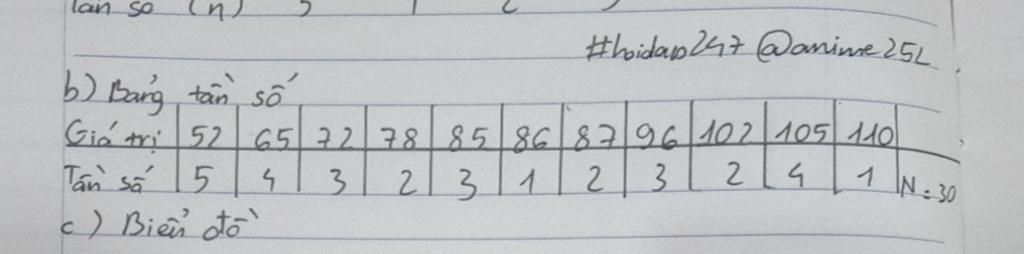 tần số (n) 5
#hoidap247 @anime25L
b) Bảng tần số
Giá trị 52 65 72 78 85 86 87 96 102 105 110
Tần số 5 4 3 2 3 1 2 3 2 4 1 N = 30
c) Biển đồ